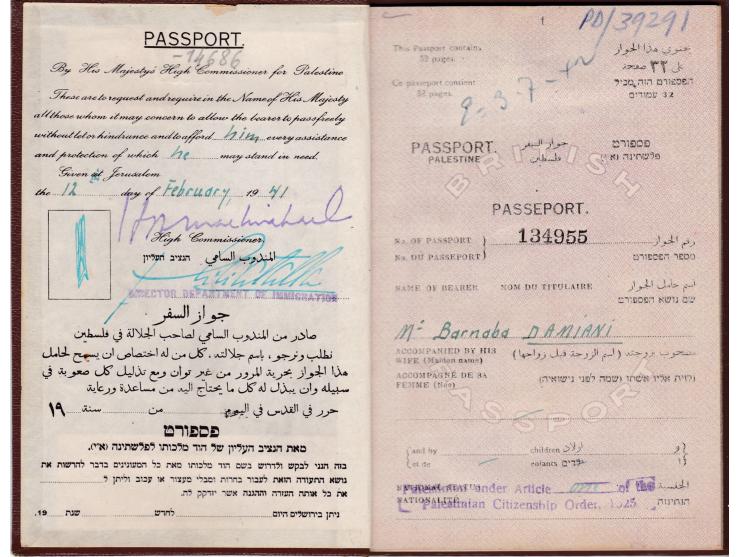 PASSPORT.
-14686
By His Majesty's High Commissioner for Palestine
These are to request and require in the Name of His Majesty
all those whom it may concern to allow the bearer to pass freely
without let or hindrance and to afford him every assistance
and protection of which he may stand in need.
Given at Jerusalem
the 12 day of February, 19 41
High Commissioner.
المندوب السامي הנציב העליון
DIRECTOR DEPARTMENT OF IMMIGRATION
جواز السفر
صادر من المندوب السامي لصاحب الجلالة في فلسطين
نطلب ونرجو، باسم جلالته، كل من له اختصاص ان يسمح لحامل
هذا الجواز بحرية المرور من غير توان ومع تذليل كل صعوبة في
سبيله وان يبذل له كل ما يحتاج اليه من مساعدة ورعاية
حرر في القدس في اليوم من سنة ١٩
פספורט
מאת הנציב העליון של הוד מלכותו לפלשתינה (א״י).
בזה הנני לבקש ולדרוש בשם הוד מלכותו מאת כל המעונינים בדבר להרשות את
נושא התעודה הזאת לעבור בחרות ומבלי מעצור או עכוב וליתן ל
את כל אותה העזרה וההגנה אשר יזדקק לה.
ניתן בירושלים היום לחדש שנת 19.
1
PD/39291
This Passport contains 32 pages.
يحتوي هذا الجواز على ٣٢ صفحة
Ce passeport contient 32 pages.
הפספורט הזה מכיל 32 עמודים
PASSPORT. جواز السفر פספורט
PALESTINE فلسطين
BRITISH
PASSEPORT.
No. OF PASSPORT 134955 رقم الجواز
No. DU PASSEPORT מספר הפספורט
NAME OF BEARER NOM DU TITULAIRE اسم حامل الجواز
שם נושא הפספורט
Mr Barnaba DAMIANI
ACCOMPANIED BY HIS WIFE (Maiden name) مصحوب بزوجته (اسم الزوجة قبل زواجها)
ACCOMPAGNÉ DE SA FEMME (Née) (לוית אליו אשתו (שמה לפני נישואיה
PASSPORT
and by children اولاد و
et de enfants ילדים ו
NATIONAL STATUS الجنسية
NATIONALITÉ הנתינות
Palestinian under Article one of the
Palestinian Citizenship Order, 1925